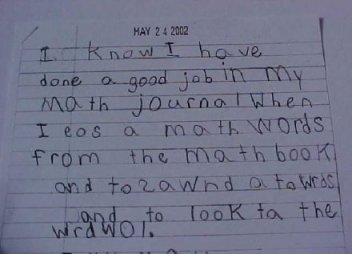 MAY 24 2002
I. Know I have
done a good job in my
Math journal When
I eos a math Words
from the math book
and to 2 awnd a to Wrds
and to look ta the
wrd WOl.